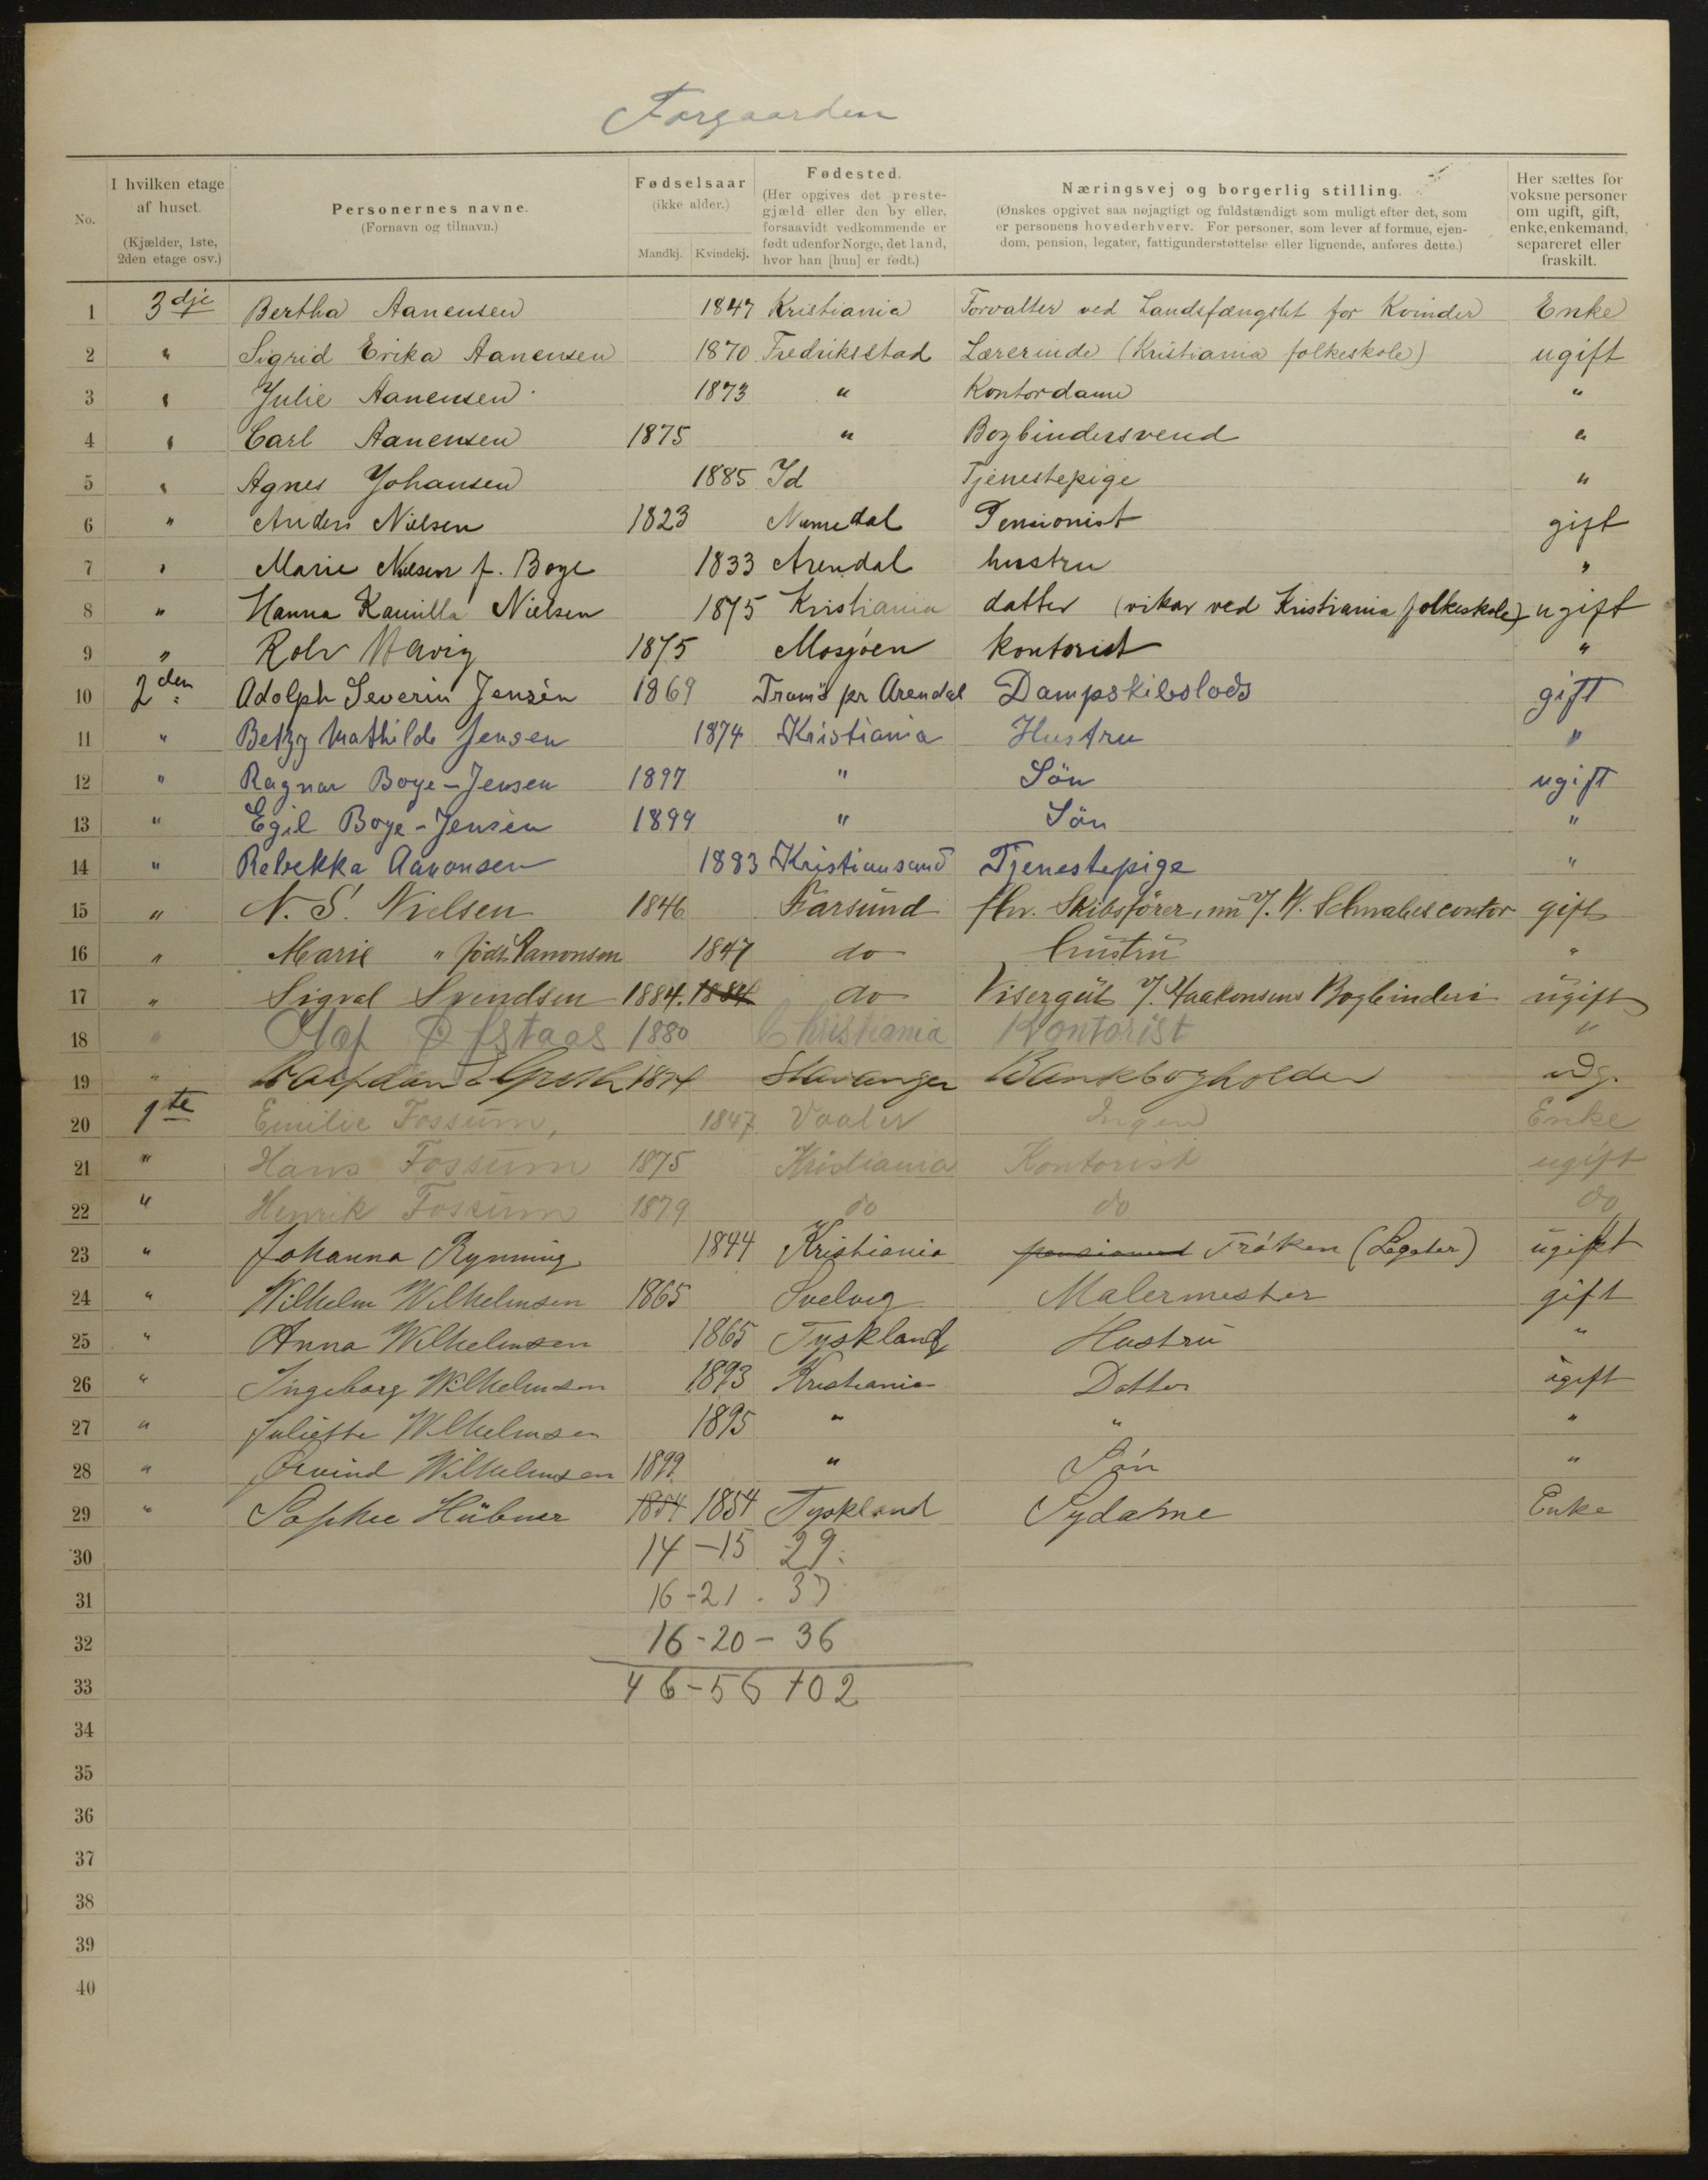 Forgaarden
No. I hvilken etage af huset. (Kjælder, 1ste, 2den etage osv.) Personernes navne. (Fornavn og tilnavn.) Fødselsaar (ikke alder.) Mandkj. Kvindekj. Fødested. (Her opgives det prestegjæld eller den by eller, forsaavidt vedkommende er født udenfor Norge, det land, hvor han [hun] er født.) Næringsvej og borgerlig stilling. (Ønskes opgivet saa nøjagtigt og fuldstændigt som muligt efter det, som er personens hovederhverv. For personer, som lever af formue, ejendom, pension, legater, fattigunderstøttelse eller lignende, anføres dette.) Her sættes for voksne personer om ugift, gift, enke, enkemand, separeret eller fraskilt.
1 3dje Bertha Aanensen 1847 Kristiania Forvalter ved Landsfængslet for Kvinder Enke
2 " Sigrid Erika Aanensen 1870 Fredriksstad Lærerinde (Kristiania folkeskole) ugift
3 " Julie Aanensen 1873 " Kontordame "
4 " Carl Aanensen 1875 " Bogbindersvend "
5 " Agnes Johansen 1885 Id Tjenestepige "
6 " Anders Nielsen 1823 Numedal Pensionist gift
7 " Marie Nielsen f. Boye 1833 Arendal hustru "
8 " Hanna Kamilla Nielsen 1875 Kristiania datter (vikar ved Kristiania folkeskole) ugift
9 " Rolv 1875 Mosjöen kontorist "
10 2den Adolph Severin Jensen 1869 Tromö pr Arendal Dampskibslods gift
11 " Betzy Mathilde Jensen 1874 Kristiania Hustru "
12 " Ragnar Boye-Jensen 1897 " Sön ugift
13 " Egil Boye-Jensen 1899 " Sön "
14 " Rebekka Aanonsen 1883 Kristiansand Tjenestepige "
15 " N. S. Nielsen 1846 Farsund fhv. Skibsförer, nu Schwabes contor gift
16 " Marie " födt Aanonsen 1847 do hustru "
17 " Sigval Svendsen 1884. 1884 do Visergut Haakonsens Bogbinderi ugift
18 " Olaf Øfstaas 1880 Christiania Kontorist "
19 " 1874 Stavanger Bankbogholder ug.
20 1te Emilie Fossum, 1847 Vaaler Ingen Enke
21 " Hans Fossum 1875 Kristiania Kontorist ugift
22 " Henrik Fossum 1879 do do do
23 " Johanna Rynning 1844 Kristiania pensioneret Fröken (Legater) ugift
24 " Wilhelm Wilhelmsen 1865 Svelvig Malermester gift
25 " Anna Wilhelmsen 1865 Tyskland Hustru "
26 " Ingeborg Wilhelmsen 1893 Kristiania Datter ugift
27 " Juliette Wilhelmsen 1895 " " "
28 " Øivind Wilhelmsen 1899 " Sön "
29 " Sophie Hübner 1854 1854 Tyskland Sydame Enke
30 14 - 15 29.
31 16 - 21 . 37
32 16 - 20 - 36
33 46 - 56 102
34
35
36
37
38
39
40